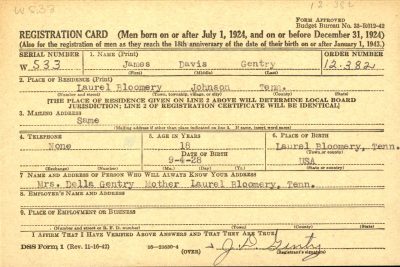 W 533
12 382
FORM APPROVED
Budget Bureau No. 33-R012-42
REGISTRATION CARD (Men born on or after July 1, 1924, and on or before December 31, 1924)
(Also for the registration of men as they reach the 18th anniversary of the date of their birth on or after January 1, 1943.)
SERIAL NUMBER 1. NAME (Print) ORDER NUMBER
W 533 James Davis Gentry 12,382
(First) (Middle) (Last)
2. PLACE OF RESIDENCE (Print)
Laurel Bloomery Johnson Tenn.
(Number and street) (Town, township, village, or city) (County) (State)
[THE PLACE OF RESIDENCE GIVEN ON LINE 2 ABOVE WILL DETERMINE LOCAL BOARD
JURISDICTION; LINE 2 OF REGISTRATION CERTIFICATE WILL BE IDENTICAL]
3. MAILING ADDRESS
Same
[Mailing address if other than place indicated on line 2. If same, insert word same]
4. TELEPHONE 5. AGE IN YEARS 6. PLACE OF BIRTH
None 18 Laurel Bloomery, Tenn.
DATE OF BIRTH (Town or county)
9-4-28 USA
(Exchange) (Number) (Mo.) (Day) (Yr.) (State or country)
7 NAME AND ADDRESS OF PERSON WHO WILL ALWAYS KNOW YOUR ADDRESS
Mrs. Della Gentry Mother Laurel Bloomery, Tenn.
8. EMPLOYER'S NAME AND ADDRESS
9. PLACE OF EMPLOYMENT OR BUSINESS
(Number and street or R. F. D. number) (Town) (County) (State)
I AFFIRM THAT I HAVE VERIFIED ABOVE ANSWERS AND THAT THEY ARE TRUE.
DSS Form 1 (Rev. 11-16-42) 16-21630-4 (OVER) J.D. Gentry